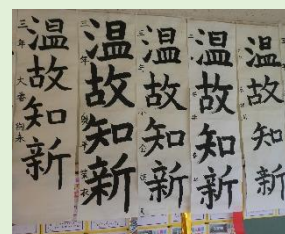 温故知新
三年
温故知新
三年
温故知新
温故知新
温故知新